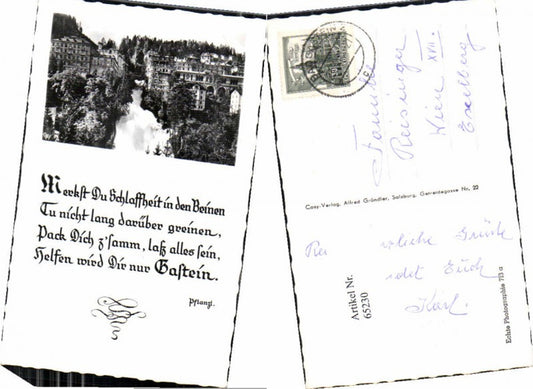 Merkst Du Schlaffheit in den Beinen
Tu nicht lang darüber greinen,
Pack Dich z'samm, laß alles sein,
Helfen wird Dir nur Gastein.
Pflanzl.
Familie
Reisinger
Wien XVII.
Cosy-Verlag, Alfred Gründler, Salzburg, Getreidegasse Nr. 22
Grüße
Euch
Karl.
Artikel Nr.
65230
Echte Photographie 713 a